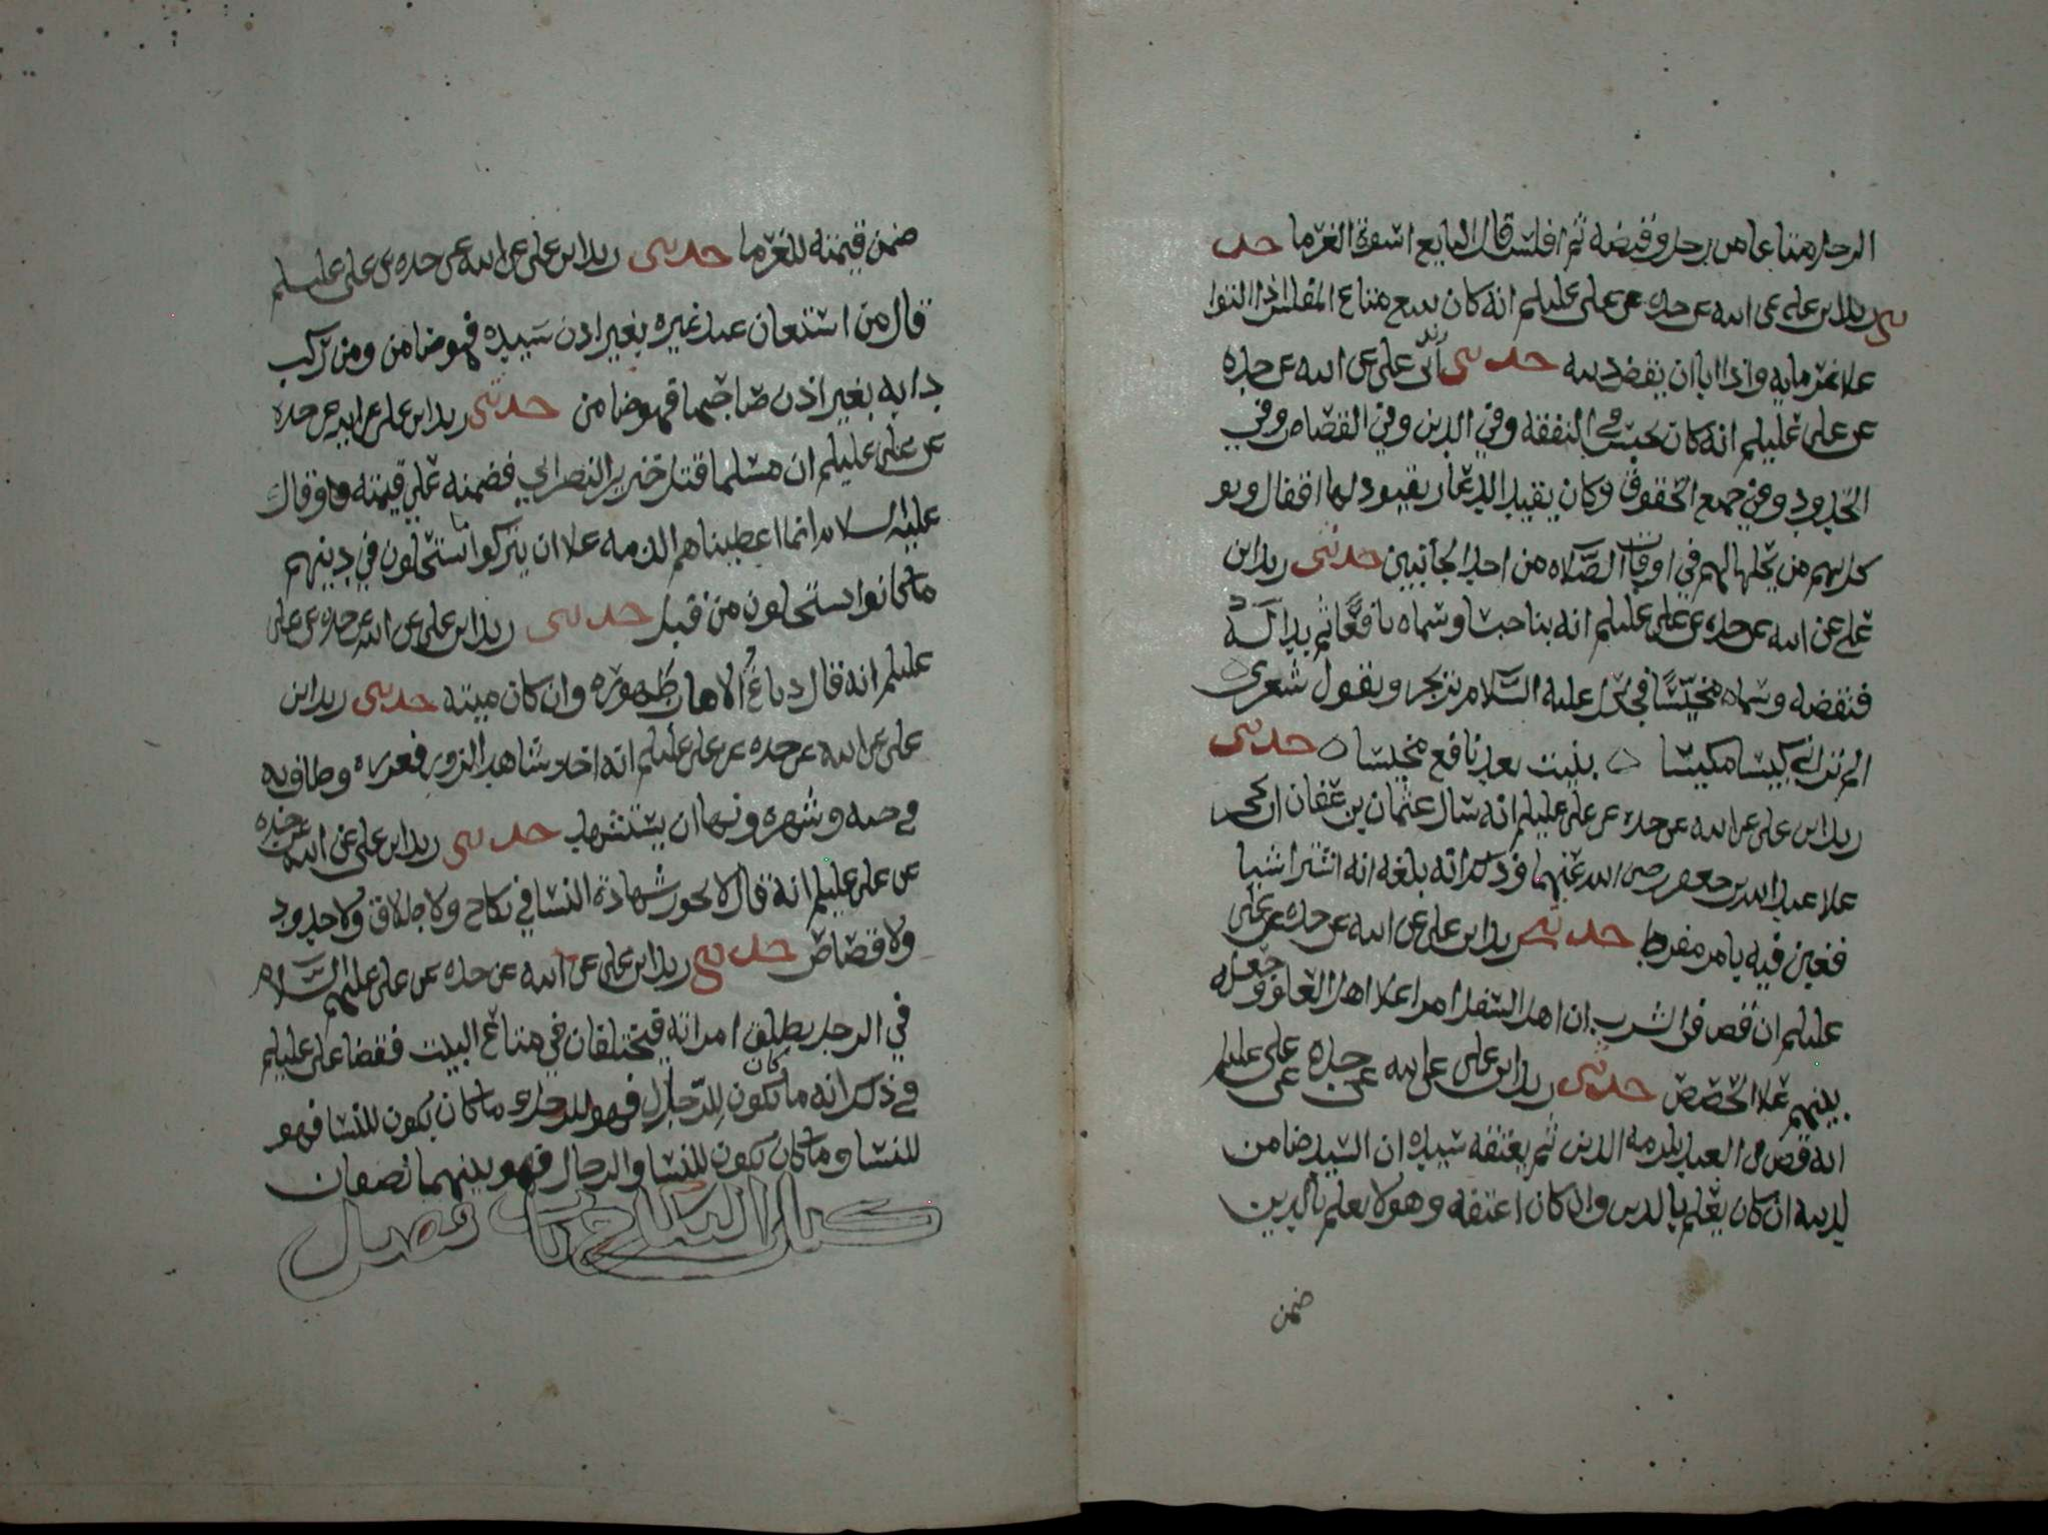 الرجل متاعا من رجل وقبضه ثم افلس قال البايع اسوة الغرما حد
ثني زيد ابن علي عن ابيه عن جده عن علي عليلم انه كان يبيع متاع المفلس اذا التوا
علا غرمايه واذا ابا ان يقضي دينه حدثني زيد ابن علي عن ابيه عن جده
عن علي عليلم انه كان يحبس في النفقه وفي الدين وفي القصاص وفي
الحدود وفي جميع الحقوق وكان يقيد الدعار بقيود لها اقفال ويو
كل بهم من يحلها لهم في اوقات الصلاه من احد الجانبين حدثني زيد ابن
علي عن ابيه عن جده عن علي عليلم انه بنا حبسا وسماه نافعا ثم بدا له
فنقضه وسماه مخيسا فجعل عليه السلام يرتجز ويقول شعرى
الم تراني كيسا مكيسا ٥ بنيت بعد نافع مخيسا ٥ حدثني
زيد ابن علي عن ابيه عن جده عن علي عليلم انه سال عثمان بن عفان ان يحجر
علا عبد الله بن جعفر رضي الله عنهما وذلك انه بلغه انه اشترا شيا
فغبن فيه بامر مفرط حدثني زيد ابن علي عن ابيه عن جده عن علي
عليلم ان قضى في الشرب ان اهل السفل امرا علا اهل العلو وجعله
بينهم علا الحصص حدثني زيد ابن علي عن ابيه عن جده عن علي عليلم
انه قضى في العبد يلزمه الدين ثم يعتقه سيده ان السيد ضامن
لدينه ان كان يعلم بالدين وان كان اعتقه وهو لا يعلم بالدين
ضمن
ضمن قيمته للغرما حدثني زيد ابن علي عن ابيه عن جده عن علي عليلم
قال من استعان عبد غيره بغير اذن سيده فهو ضامن ومن ركب
دابه بغير اذن صاحبها فهو ضامن حدثني زيد ابن علي عن ابيه عن جده
عن علي عليلم ان مسلما قتل خنزير النصراني فضمنه علي قيمته وقال
عليه السلام انما اعطيناهم الذمه علا ان يتركوا يستحلون في دينهم
ما كانوا يستحلون من قبل حدثني زيد ابن علي عن ابيه عن جده عن علي
عليلم انه قال دباغ الاهاب طهوره وان كان ميته حدثني زيد ابن
علي عن ابيه عن جده عن علي عليلم انه اخذ شاهد الزور فعزره وطاف به
في حيه وشهره ونها ان يستشهد حدثني زيد ابن علي عن ابيه عن جده
عن علي عليلم انه قال لا يجوز شهادة النسا في نكاح ولا طلاق ولا حدود
ولا قصاص حدثني زيد ابن علي عن ابيه عن جده عن علي عليهم السلام
في الرجل يطلق امراته فيختلفان في متاع البيت فقضا علي عليلم
في ذلك انه ما كان يكون للرجال فهو للرجل وما كان يكون للنسا فهو
للنسا وما كان يكون للنسا والرجال فهو بينهما نصفان
كتاب النكاح باب فضل